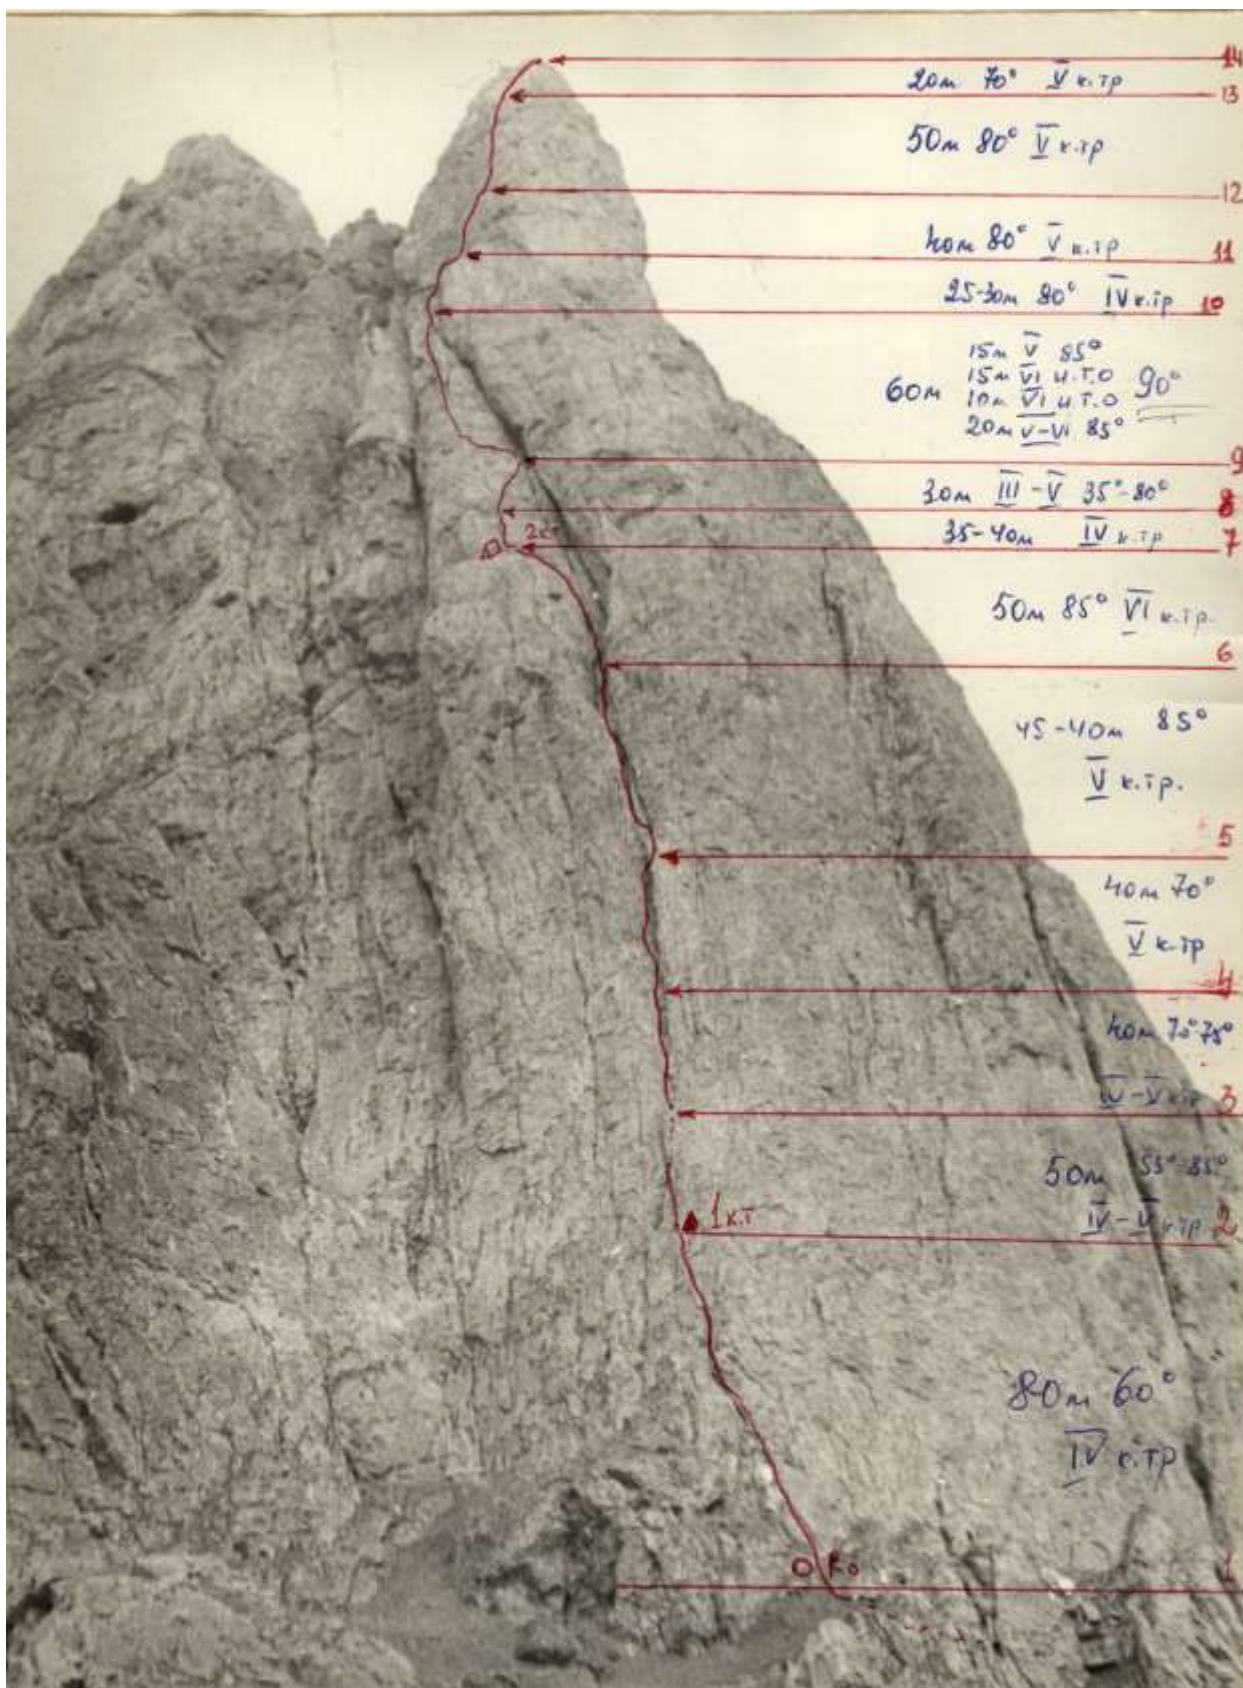 14
20м 70° V к.тр
13
50м 80° V к.тр
12
40м 80° V к.тр
11
25-30м 80° IV к.тр
10
15м V 85°
15м VI И.Т.О
60м
90°
10м VI И.Т.О
20м V-VI 85°
9
30м III - V 35°-80°
8
35-40м IV к.тр
7
50м 85° VI к.тр.
6
45-40м 85°
V к.тр.
5
40м 70°
V к.тр
4
40м 70°-75°
IV-V к.тр
3
50м 55°-85°
IV-V к.тр
2
1к.т
80м 60°
IV к.тр
1